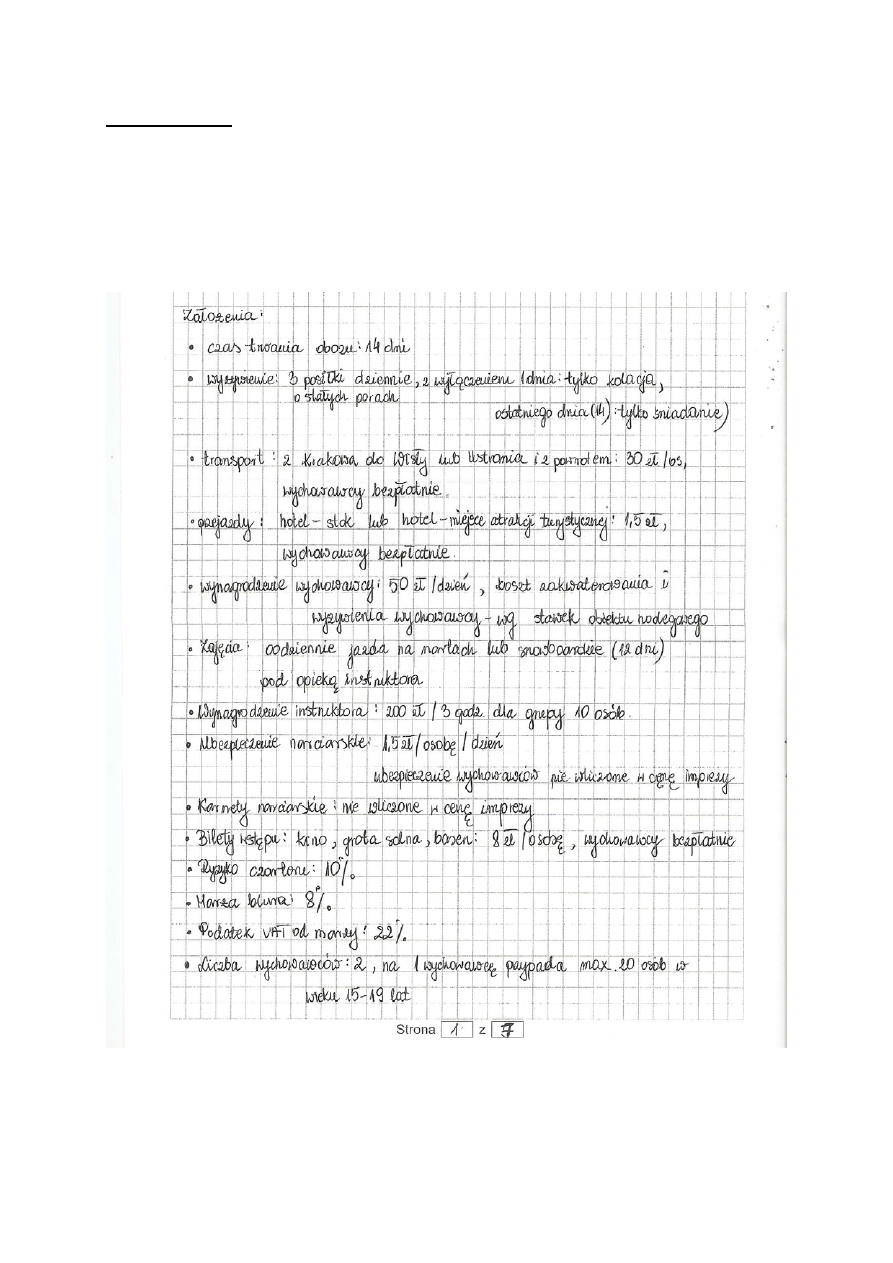 Założenia:
• czas trwania obozu: 14 dni
• wyżywienie: 3 posiłki dziennie, z wyłączeniem 1 dnia: tylko kolacja,
o stałych porach
ostatniego dnia (14): tylko śniadanie)
• transport: z Krakowa do Wisły lub Ustronia i z powrotem: 30 zł/os,
wychowawcy bezpłatnie.
• przejazdy: hotel – stok lub hotel – miejsce atrakcji turystycznej: 1,5 zł,
wychowawcy bezpłatnie.
• wynagrodzenie wychowawcy: 50 zł/dzień, koszt zakwaterowania i
wyżywienia wychowawcy – wg stawek obiektu noclegowego
• Zajęcia: codziennie jazda na nartach lub snowboardzie (12 dni)
pod opieką instruktora
• Wynagrodzenie instruktora: 200 zł / 3 godz. dla grupy 10 osób.
• Ubezpieczenie narciarskie: 1,5 zł/osobę/dzień
ubezpieczenie wychowawców nie wliczone w cenę imprezy
• Karnety narciarskie: nie wliczone w cenę imprezy
• Bilety wstępu: kino, grota solna, basen: 8 zł/osobę, wychowawcy bezpłatnie
• Ryzyko czartoru: 10%.
• Marża biura: 8%.
• Podatek VAT od marży: 22%.
• Liczba wychowawców: 2, na 1 wychowawcę przypada max. 20 osób w
wieku 15-19 lat
Strona 1 z 7